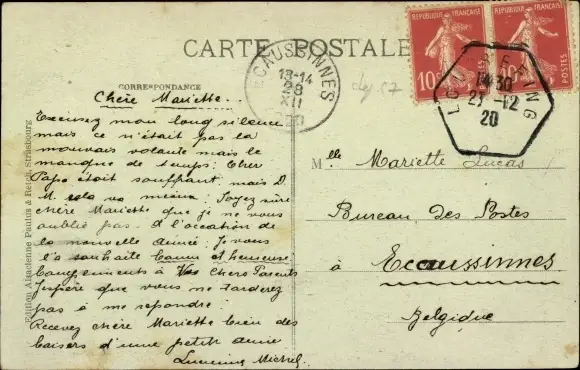 CARTE POSTALE
CORRESPONDANCE
Chère Mariette.
Excusez mon long silence
mais ce n'était pas la
mauvais volonté mais le
manque de temps; Cher
Papa était souffrant, mais D.
M. cela va mieux. Soyez sûre
chère Mariette que je ne vous
oublié pas. A l'occasion de
la nouvelle année; Je vous
l'a souhaite bonne et heureuse
Compliments à Vos Chers Parents
J'espère que vous ne tarderez
pas à me repondre.
Recevez chère Mariette bien des
baisers d'une petit amie
Lucienne Michel.
Edition Alsacienne Paulus & Reich, Strasbourg
ECAUSSINNES
13-14
28
XII
20
RÉPUBLIQUE FRANÇAISE
10
POSTES
RÉPUBLIQUE FRANÇAISE
10
POSTES
1430
27-12
20
Mlle Mariette Lucas
Bureau des Postes
à Eccaussinnes
Belgique